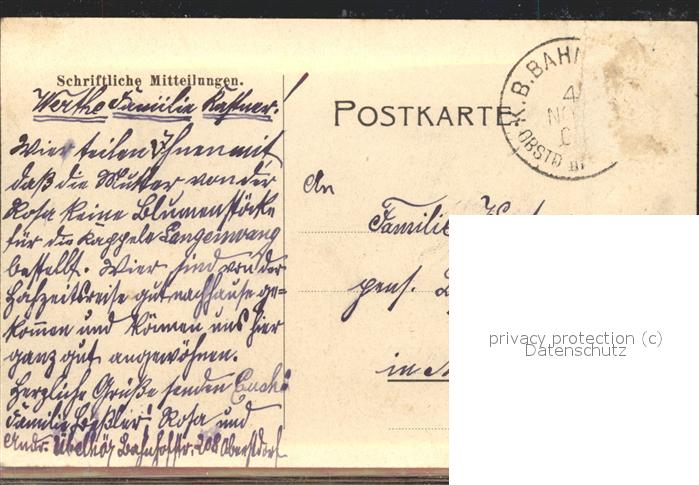 Schriftliche Mitteilungen.
Werthe Familie Kastner!
Wier teilen Ihnen mit
daß die Mutter von der
Rosa keine Blumenstöcke
für die Kappele Langenwang
bestellt. Wier sind von der
Hohzeitsreise gut nachhause ge=
kommen und können uns hier
ganz gut angewöhnen.
Herzliche Grüße senden Euch
Familie Rosa und
Andr. Bahnhofstr. 208 Oberstdorf
POSTKARTE
K.B.BAHN
4
NO
OBSTD
An
Familie
pens.
in
privacy protection (c)
Datenschutz